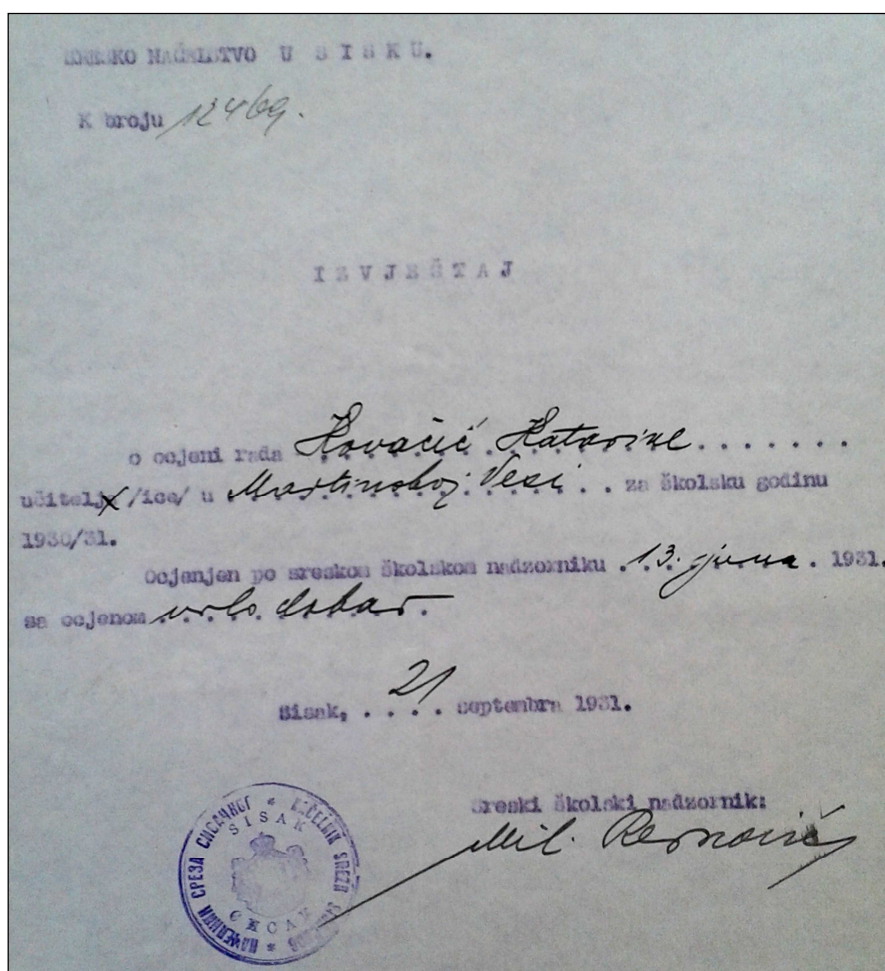 SRESKO NAČELSTVO U SISKU.
K broju 12469.
IZVJEŠTAJ
o ocjeni rada Kovačić Katarine . . . . . . .
učitelja /ice/ u Martinskoj Vesi . . za školsku godinu
1930/31.
Ocjenjen po sreskom školskom nadzorniku . 13. juna . 1931.
sa ocjenom vrlo dobar.
Sisak, . . 21 . . septembra 1931.
Sreski školski nadzornik:
Mil.
НАЧЕЛНИК СРЕЗА СИСАЧКОГ * NAČELNIK SREZA
SISAK
СИСАК